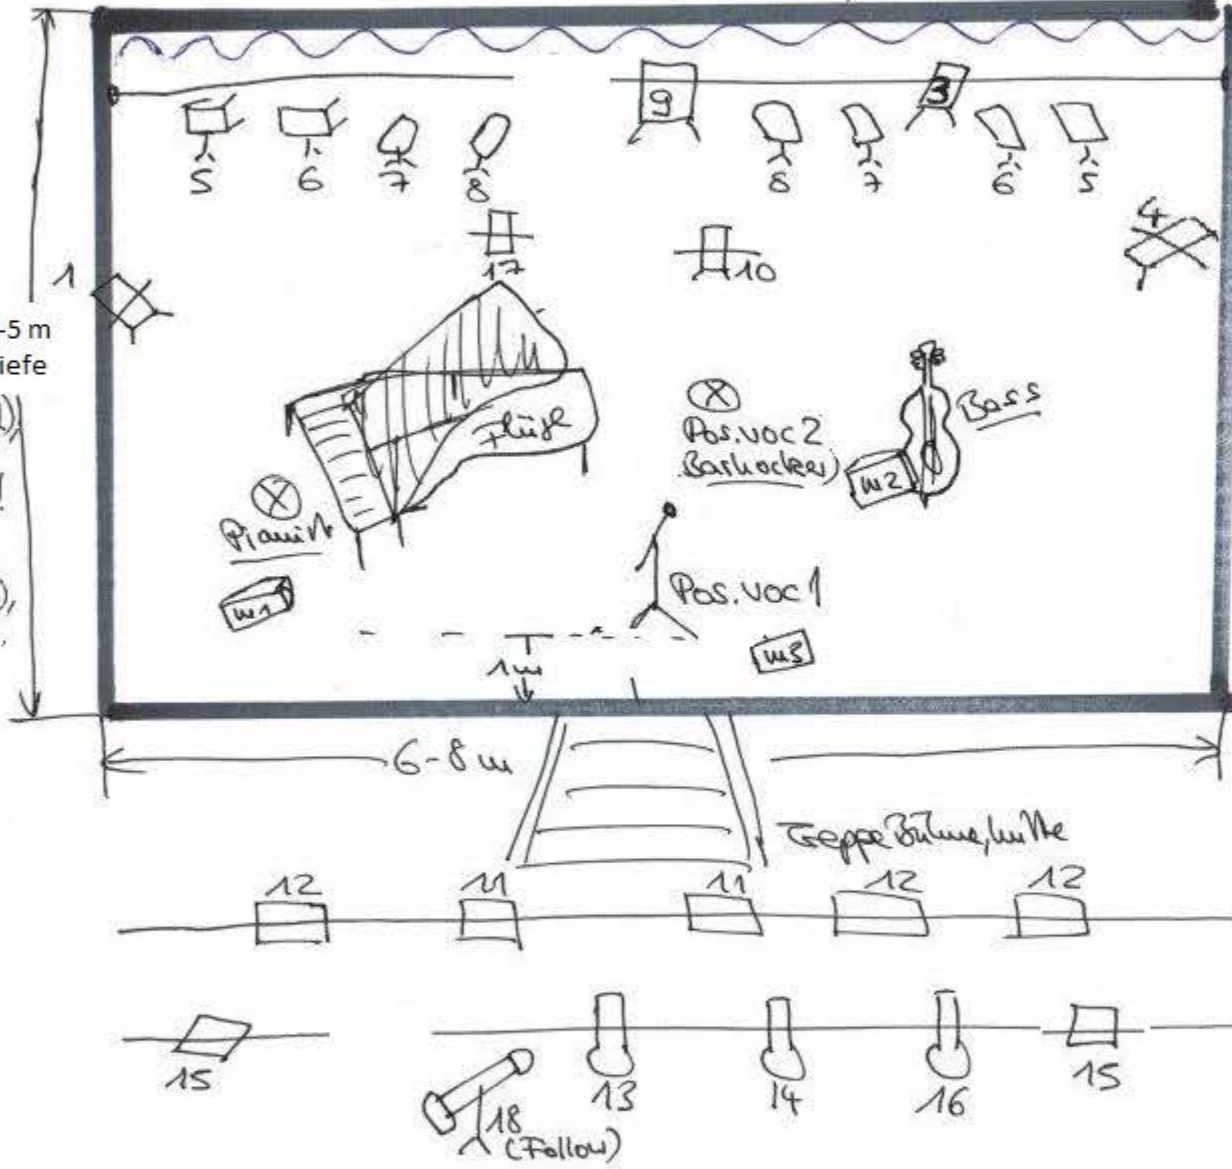 9
3
5
6
7
8
8
7
6
5
17
10
4
1
-5 m
iefe
Flügel
Pos. voc 2
(Barhocker)
Bass
m2
Pianist
m1
Pos. voc 1
m3
1m
6-8 m
Treppe Bühne, mitte
12
11
11
12
12
15
13
14
16
15
18
(Follow)